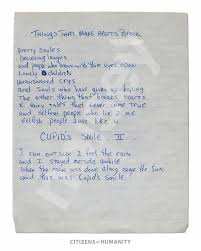 THINGS THAT MAKE HEARTS BREAK
pretty smiles
Deceiving laughs
and people who dream with their eyes open
Lonely children
unanswered cries
and souls who have given up hoping
The other thing that breaks hearts
R fairy tales that never come true
and selfish people who lie 2 me
selfish people just like u
CUPID'S SMILE II
I run outside 2 feel the rain
and I stayed outside awhile
when the rain was done along came the sun
and this was Cupid's Smile
CITIZENS of HUMANITY